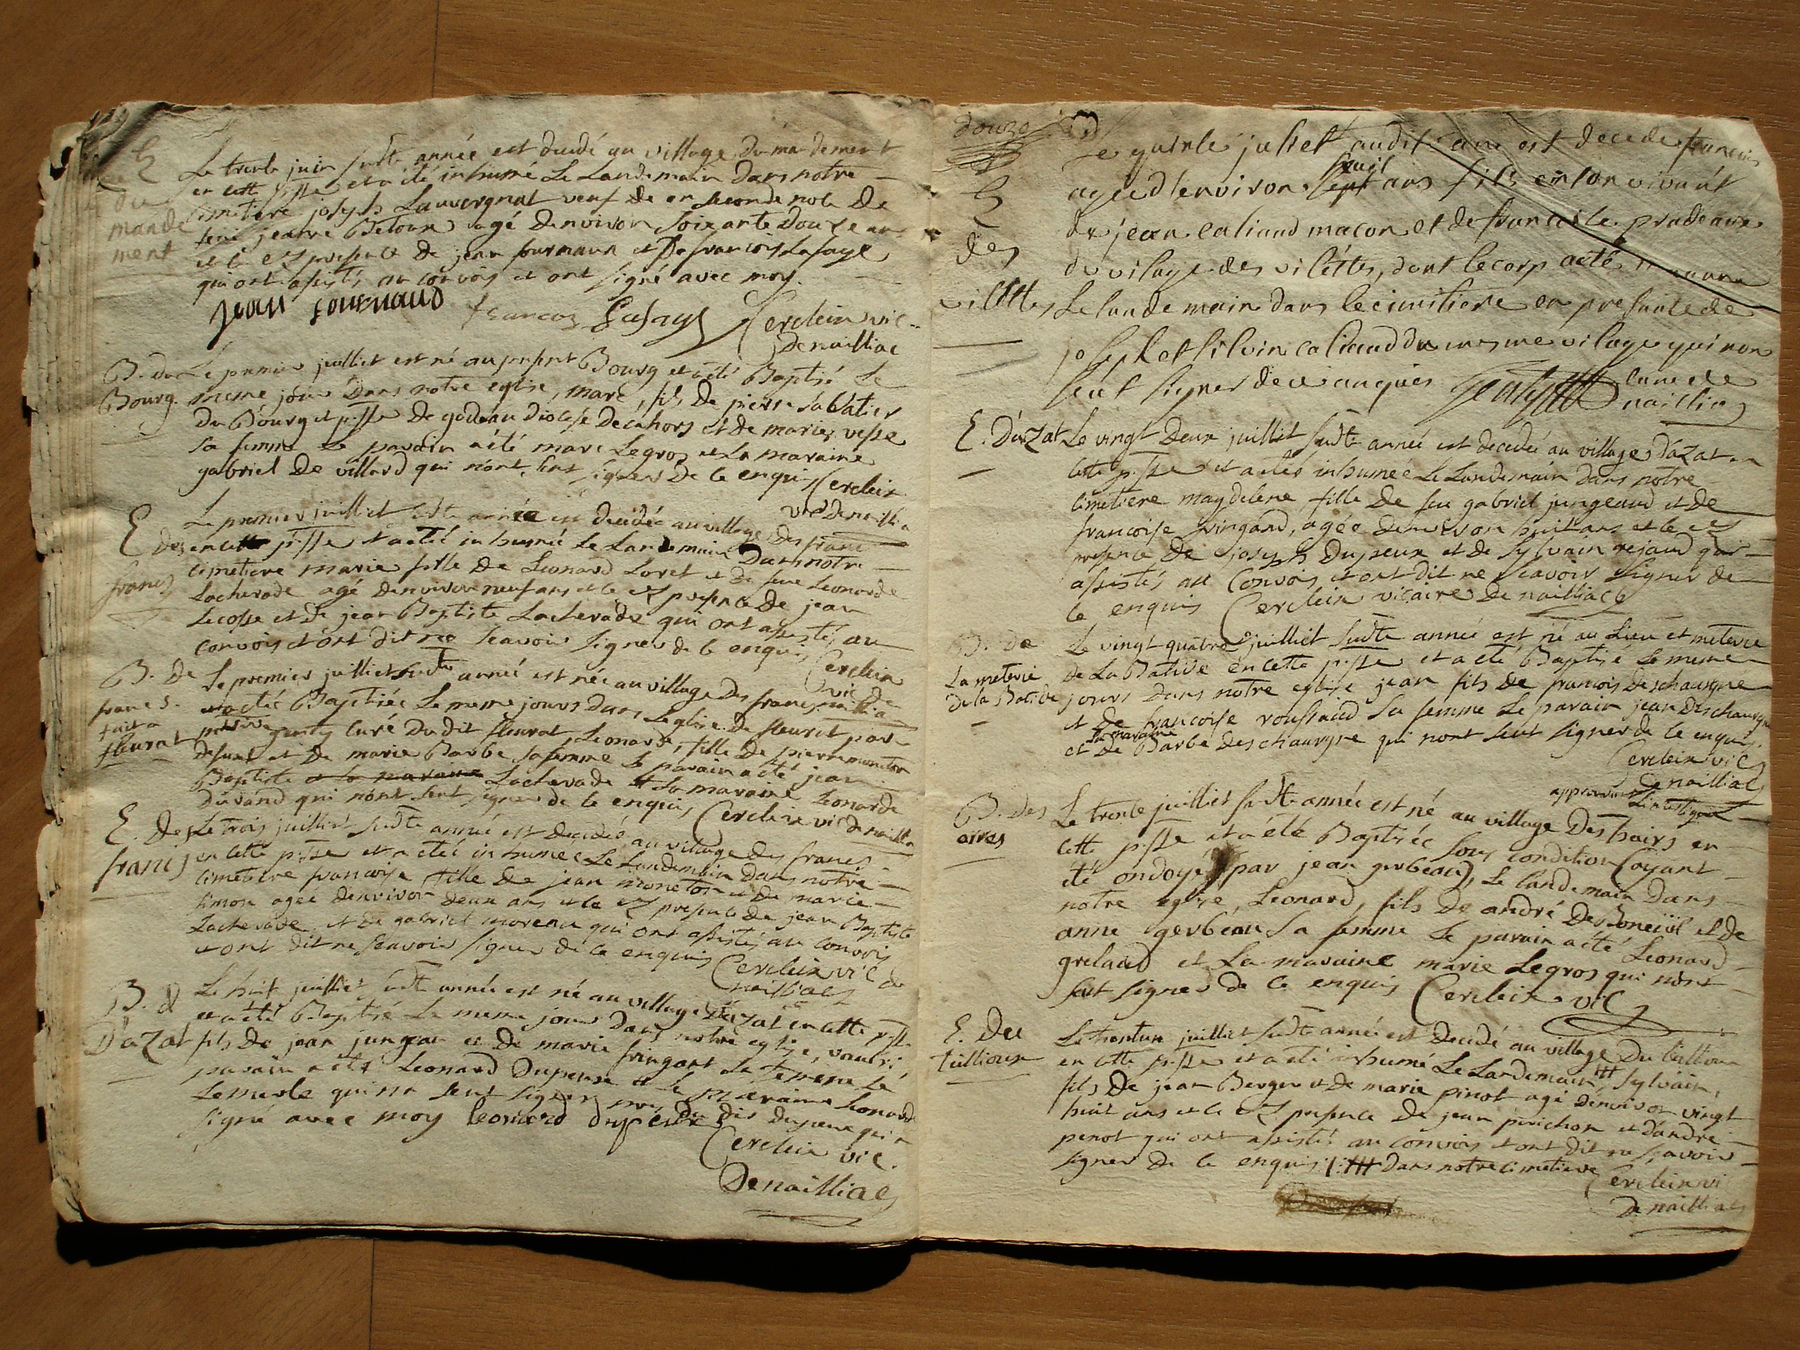 E
du
mande
ment
Le trente juin sudte année est decedé au village du mandement
en cette psse et a été inhumé Le Landemain dans notre
cimetiere joseph Lauvergnat veuf de en seconde note de
feue jeanne Betoux agé denviron soixante douze ans
et ce en presence de jean fournaux et de francois Lafaye
qui ont assistés au convois et ont signé avec moy.
jean fournaud francois Lafaye Cerclein vic.
De nailliac
B. du
Bourg.
Le premier juilliet est né au present Bourg et a été Baptisé Le
meme jour Dans notre eglise, marc, fils de pierre Sablatier
Du Bourg et psse De godeau diocese de cahors et de marie vesse
sa femme Le parain a été marc Legros et La maraine
gabriel De villard qui n'ont seut signer De ce enquis Cerclein
vic De nailliac
E
des
francs
Le premier juilliet sudte année est decedée au village des francs
en cette psse et a été inhumée Le Landemain Dans notre
cimetiere marie fille De Leonard Loret et de feue Leonarde
Lacherade agé denviron neuf ans et ce en presence De jean
Lecosse et de jean Baptiste Lacherade qui ont assistés au
convois et ont dit ne scavoir signer de ce enquis Cerclein
vic de nailliac
B. de
francs.
fait a
fleurat
Le premier juilliet sudte année est née au village des francs
et a été Baptisée Le meme jours Dans Leglise de fleurat par
genty curé Du dit fleurat, Leonarde, fille De pierre
et de marie Barbe sa femme Le parain a été jean
Baptiste Lacherade et La maraine Leonarde
Durand qui n'ont seut signer de ce enquis Cerclein vic De nailliac
E. des
francs
Le trois juilliet sudte année est decedée au village des francs
en cette psse et a été inhumée Le Landemain Dans notre
cimetiere francoise fille De jean moneton et de marie
simon agée denviron deux ans et ce en presence de jean Baptiste
Lacherade et de gabriel moreau qui ont assistés au convois
et ont dit ne scavoir signer de ce enquis Cerclein vic de
nailliac
B. d
D'azat
Le huit juilliet sudte année est né au village D'azat en cette psse
et a été Baptisé Le meme jour Dans notre eglise,
fils De jean jungeau et De marie fringant sa femme Le
parain a été Leonard Dupeux et La maraine Leonarde
Lemerle qui n'a seut signer dit dupeux qui a
signé avec moy leonard dupeux
Cerclein vic.
De nailliac
douze
E
des
vilettes
Le quinze juliet audit an est decede francois
agee d'environ huit sept ans fils en son vivant
de jean caliaud macon et de francoise pradeaux
du vilage des vilettes, dont le corp a été inhumé
Le lendemain dans le cimitiere en presance de
joseph et silvin caliaud du mesme vilage qui non
seut signer de ce anquis Genty curé de
nailliac
E. D'azat
Le vingt deux juilliet sudte année est decedée au village D'azat en
cette psse et a été inhumée Le Landemain Dans notre
cimetiere magdelene fille De feu gabriel jungeaud et de
francoise vingand, agée denviron huit ans et ce en
presence De joseph Dupeux et de sylvain rejaud qui
assistés au convois, et ont dit ne scavoir signer de
ce enquis Cerclein vicaire De nailliac
B. de
La meterie
De la Bastide
Le vingt quatre juilliet sudte année est né au Lieu et meterie
de La Bastide en cette psse et a été Baptisé Le meme
jours dans notre eglise jean fils de francois Deschauvgne
et de francoise roussaud sa femme Le parain jean Deschauvgne
et La maraine Barbe deschauvgne qui n'ont seut signer de ce enquis
Cerclein vic
De nailliac
B. des
aires
Le trente juilliet sudte année est né au village Des hairs en
cette psse et a été Baptisée sous condition (ayant
été ondoyé par jean gerbeau) Le landemain Dans
notre eglise, Leonard, fils De andré De et De
anne gerbeau sa femme Le parain a été Leonard
grelaud et La maraine marie Legros qui n'ont
seut signer de ce enquis Cerclein vic
E. Du
Tillioux
Le trentun juilliet sudte année est decedé au village Du tillioux
en cette psse et a été inhumé Le Landemain Sylvain,
fils De jean Berger et de marie pinot agé denviron vingt
huit ans et ce en presence De jean pinichon et dandre
penot qui ont assistés au convois et ont dit ne scavoir
signer de ce enquis dans notre cimetiere
Cerclein vic
De nailliac